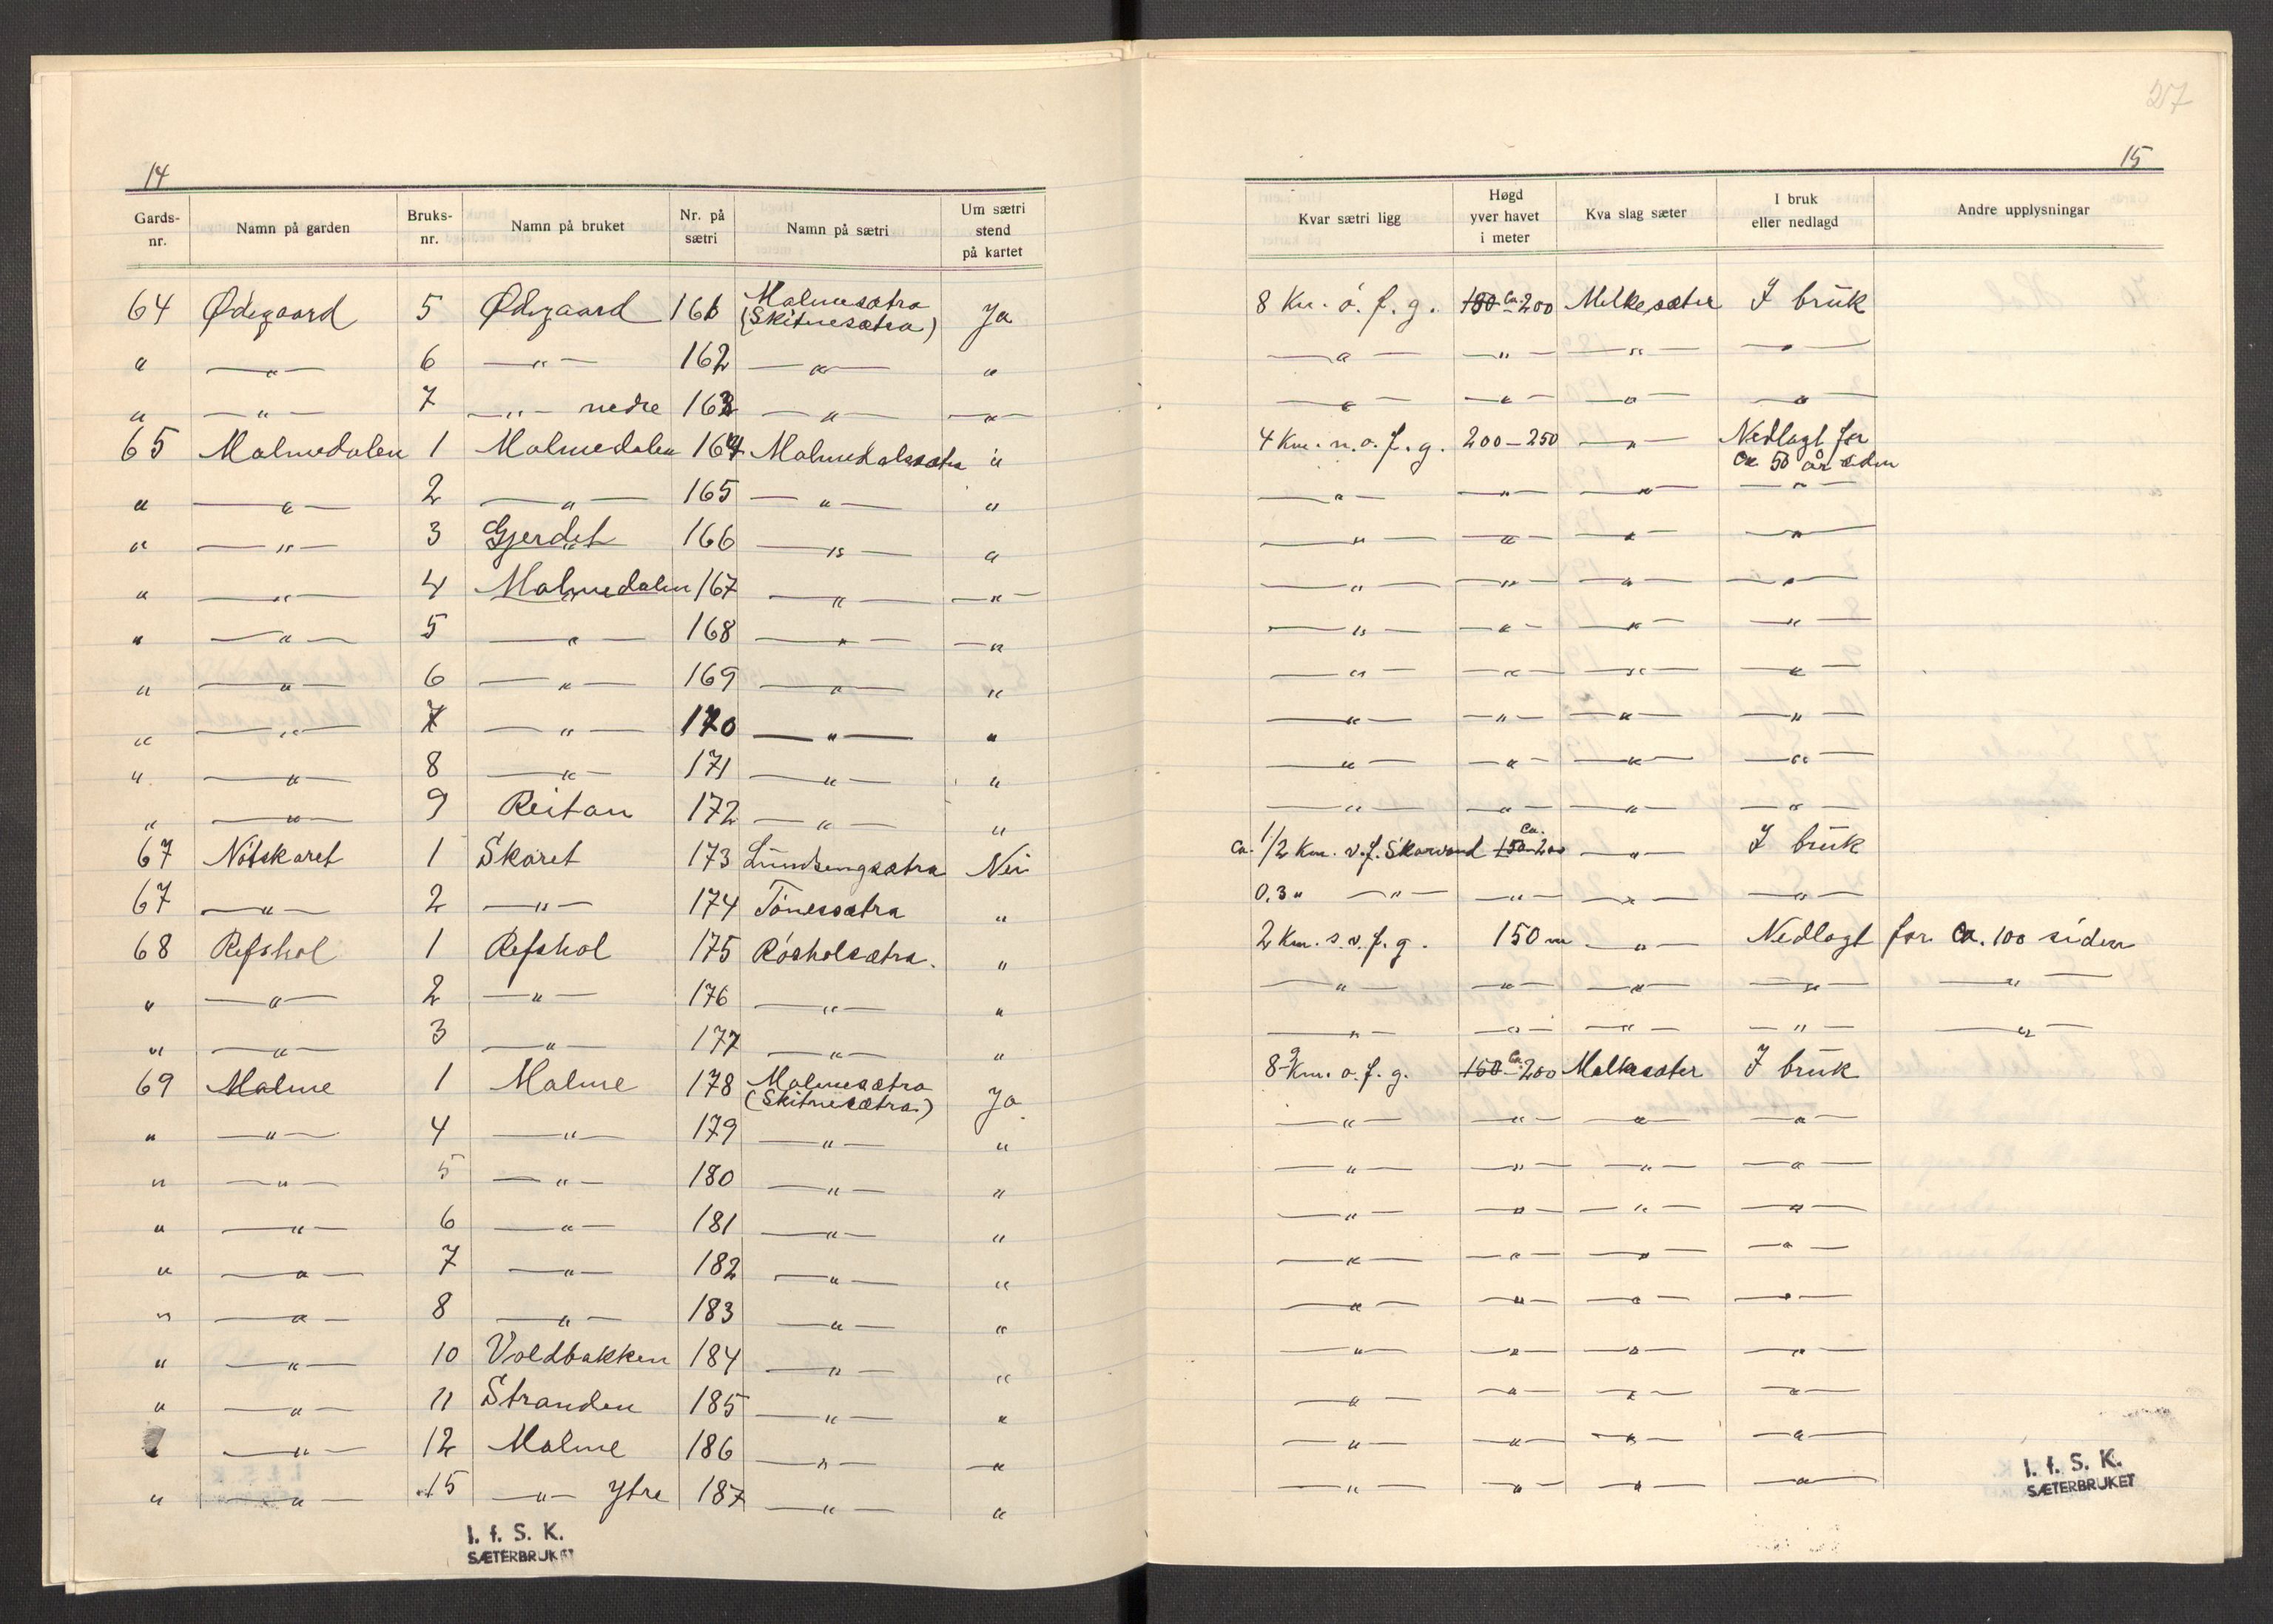 14
Gards-nr. Namn på garden Bruks-nr. Namn på bruket Nr. på sætri Namn på sætri Um sætri stend på kartet
64 Ødegaard 5 Ødegaard 161 Malmesætra (Skitnesætra) Ja
" —"— 6 —"— 162 —"— "
" —"— 7 —"— nedre 163 —"— —"—
65 Malmedalen 1 Malmedalen 164 Malmedalssætra "
" —"— 2 —"— 165 —"— "
" —"— 3 Gjerdet 166 —"— "
" —"— 4 Malmedalen 167 —"— —"—
" —"— 5 —"— 168 —"— —"
" —"— 6 —"— 169 —"— "
" —"— 7 —"— 170 —"— "
" —"— 8 —"— 171 —"— "
" —"— 9 Reitan 172 —"— "
67 Nåtskaret 1 Skaret 173 Lundsengsætra Nei
67 —"— 2 —"— 174 Tånessætra "
68 Refshol 1 Refshol 175 Råsholsætra. "
" —"— 2 —"— 176 —"— "
" —"— 3 —"— 177 —"— "
69 Malme 1 Malme 178 Malmesætra (Skitnesætra) Ja
" —"— 4 —"— 179 —"— "
" —"— 5 —"— 180 —"— "
" —"— 6 —"— 181 —"— "
" —"— 7 —"— 182 —"— "
" —"— 8 —"— 183 —"— "
" —"— 10 Voldbakken 184 —"— "
" —"— 11 Stranden 185 —"— "
—"— 12 Malme 186 —"— "
" —"— 15 —"— Ytre 187 —"— "
I. f. S. K.
SÆTERBRUKET
27
15
Kvar sætri ligg Høgd yver havet i meter Kva slag sæter I bruk eller nedlagd Andre upplysningar
8 Km. ö. f. g. 180 ca. 200 Melkesæter I bruk
—"— —"— —"— —"—
—"— —"— —"— —"—
4 Km. n. o. f. g. 200-250 —"— Nedlagt for ca 50 år siden
—"— —"— —"— —"—
—"— —"— —"— —"—
—"— —"— —"— —"—
—"— —"— —"— —"—
—"— —"— —"— —"—
—"— —"— —"— —"—
—"— —"— —"— —"—
—"— —"— —"— —"—
ca. 1/2 Km. v. f. Skarvand 150 ca. 200 —"— I bruk
0.3 " —"— —"— —"— —"—
2 Km. s. v. f. g. 150 m —"— Nedlagt for ca. 100 siden
—"— —"— —"— —"— —"—
—"— —"— —"— —"— —"—
8-9 Km. o. f. g. 150 ca. 200 Melkesæter I bruk
—"— —"— —"— —"—
—"— —"— —"— —"—
—"— —"— —"— —"—
—"— —"— —"— —"—
—"— —"— —"— —"—
—"— —"— —"— —"—
—"— —"— —"— —"—
—"— —"— —"— —"—
—"— —"— —"— —"—
I. f. S. K.
SÆTERBRUKET